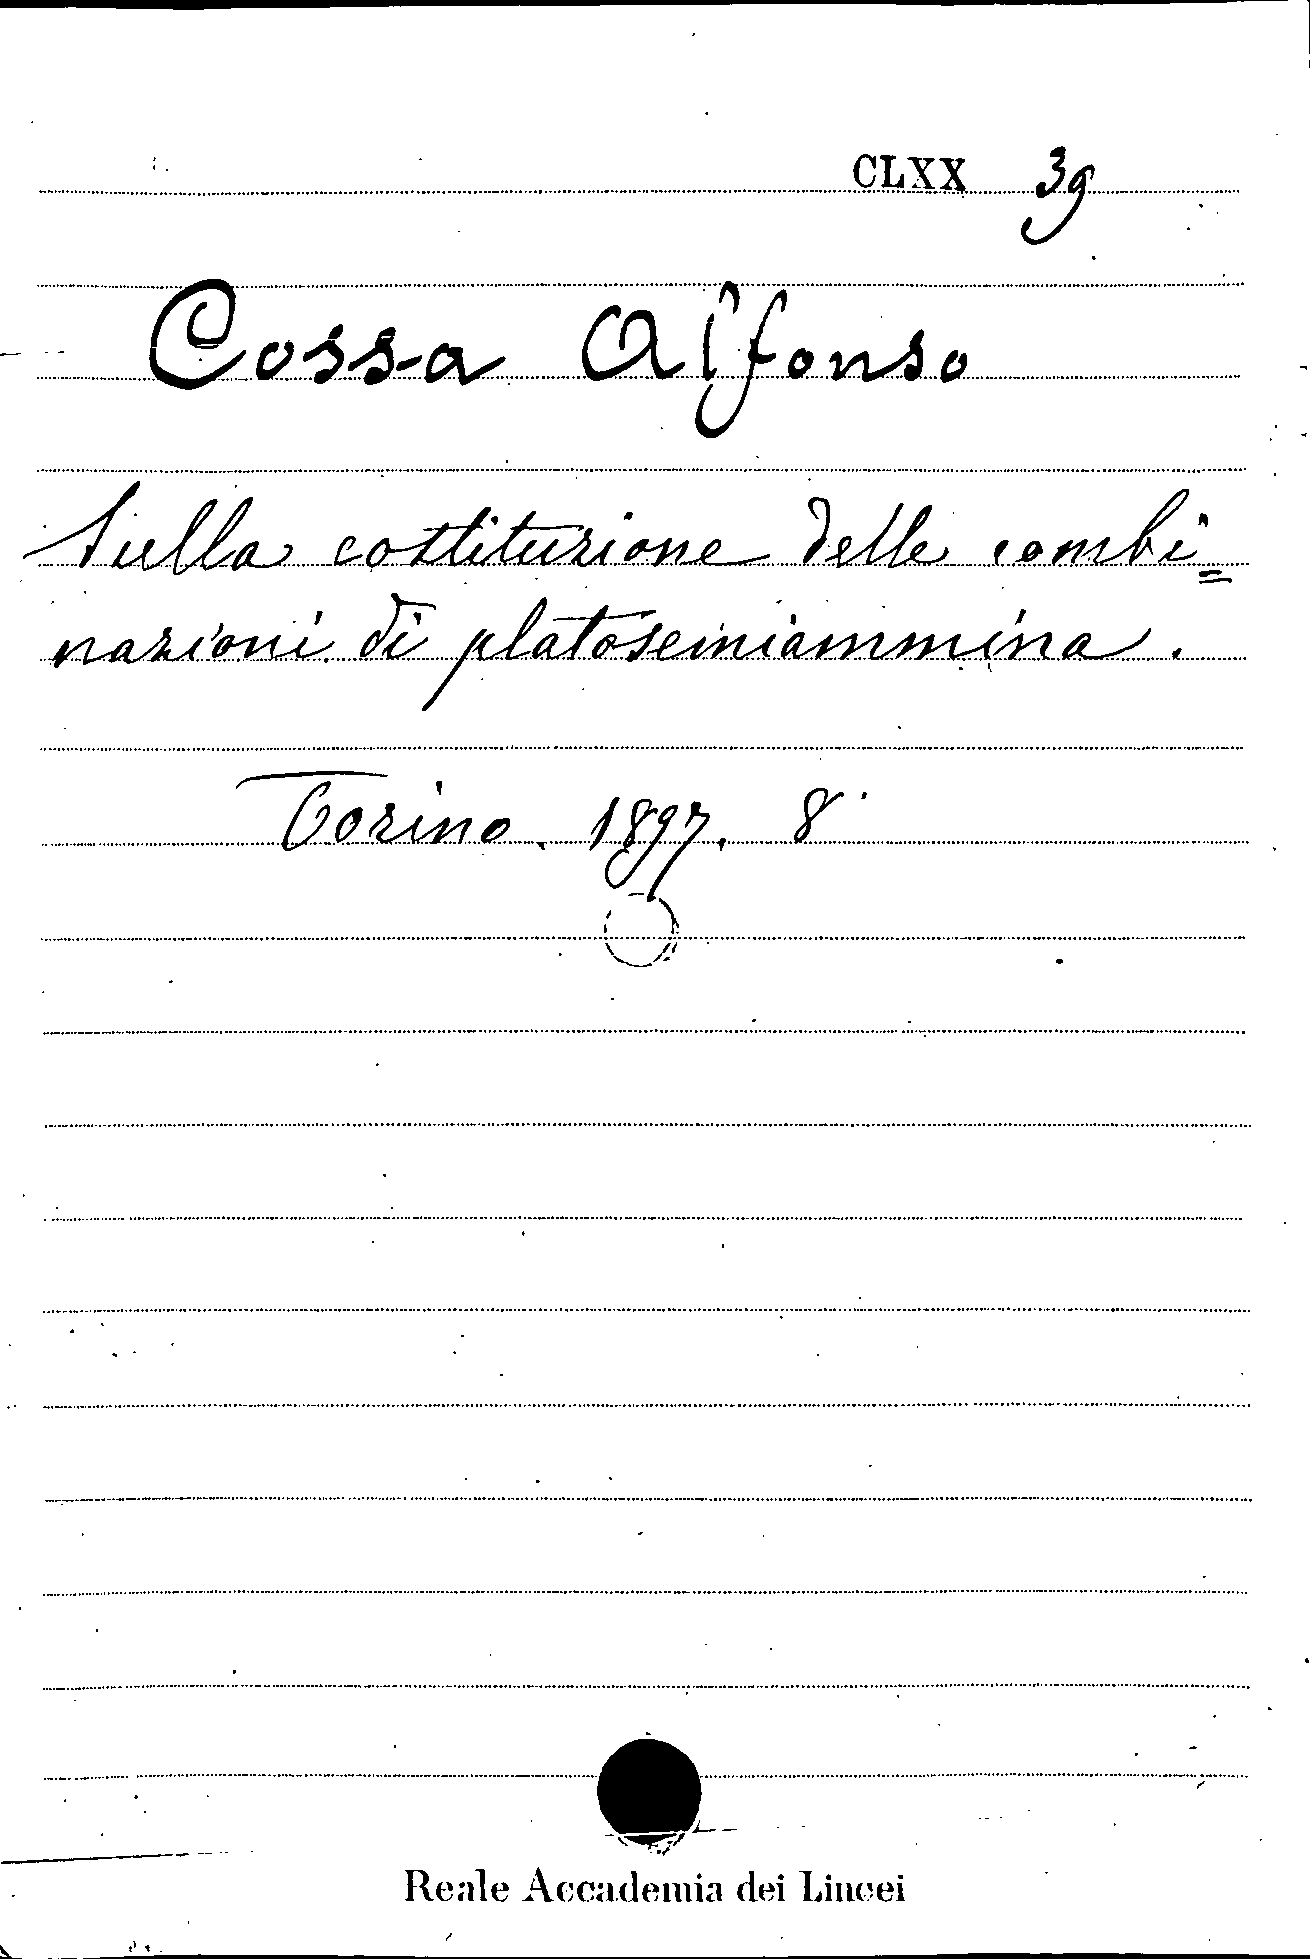 CLXX 39
Cossa Alfonso
Sulla costituzione delle combi=
nazioni di platosemiammina.
Torino. 1897. 8°
Reale Accademia dei Lincei